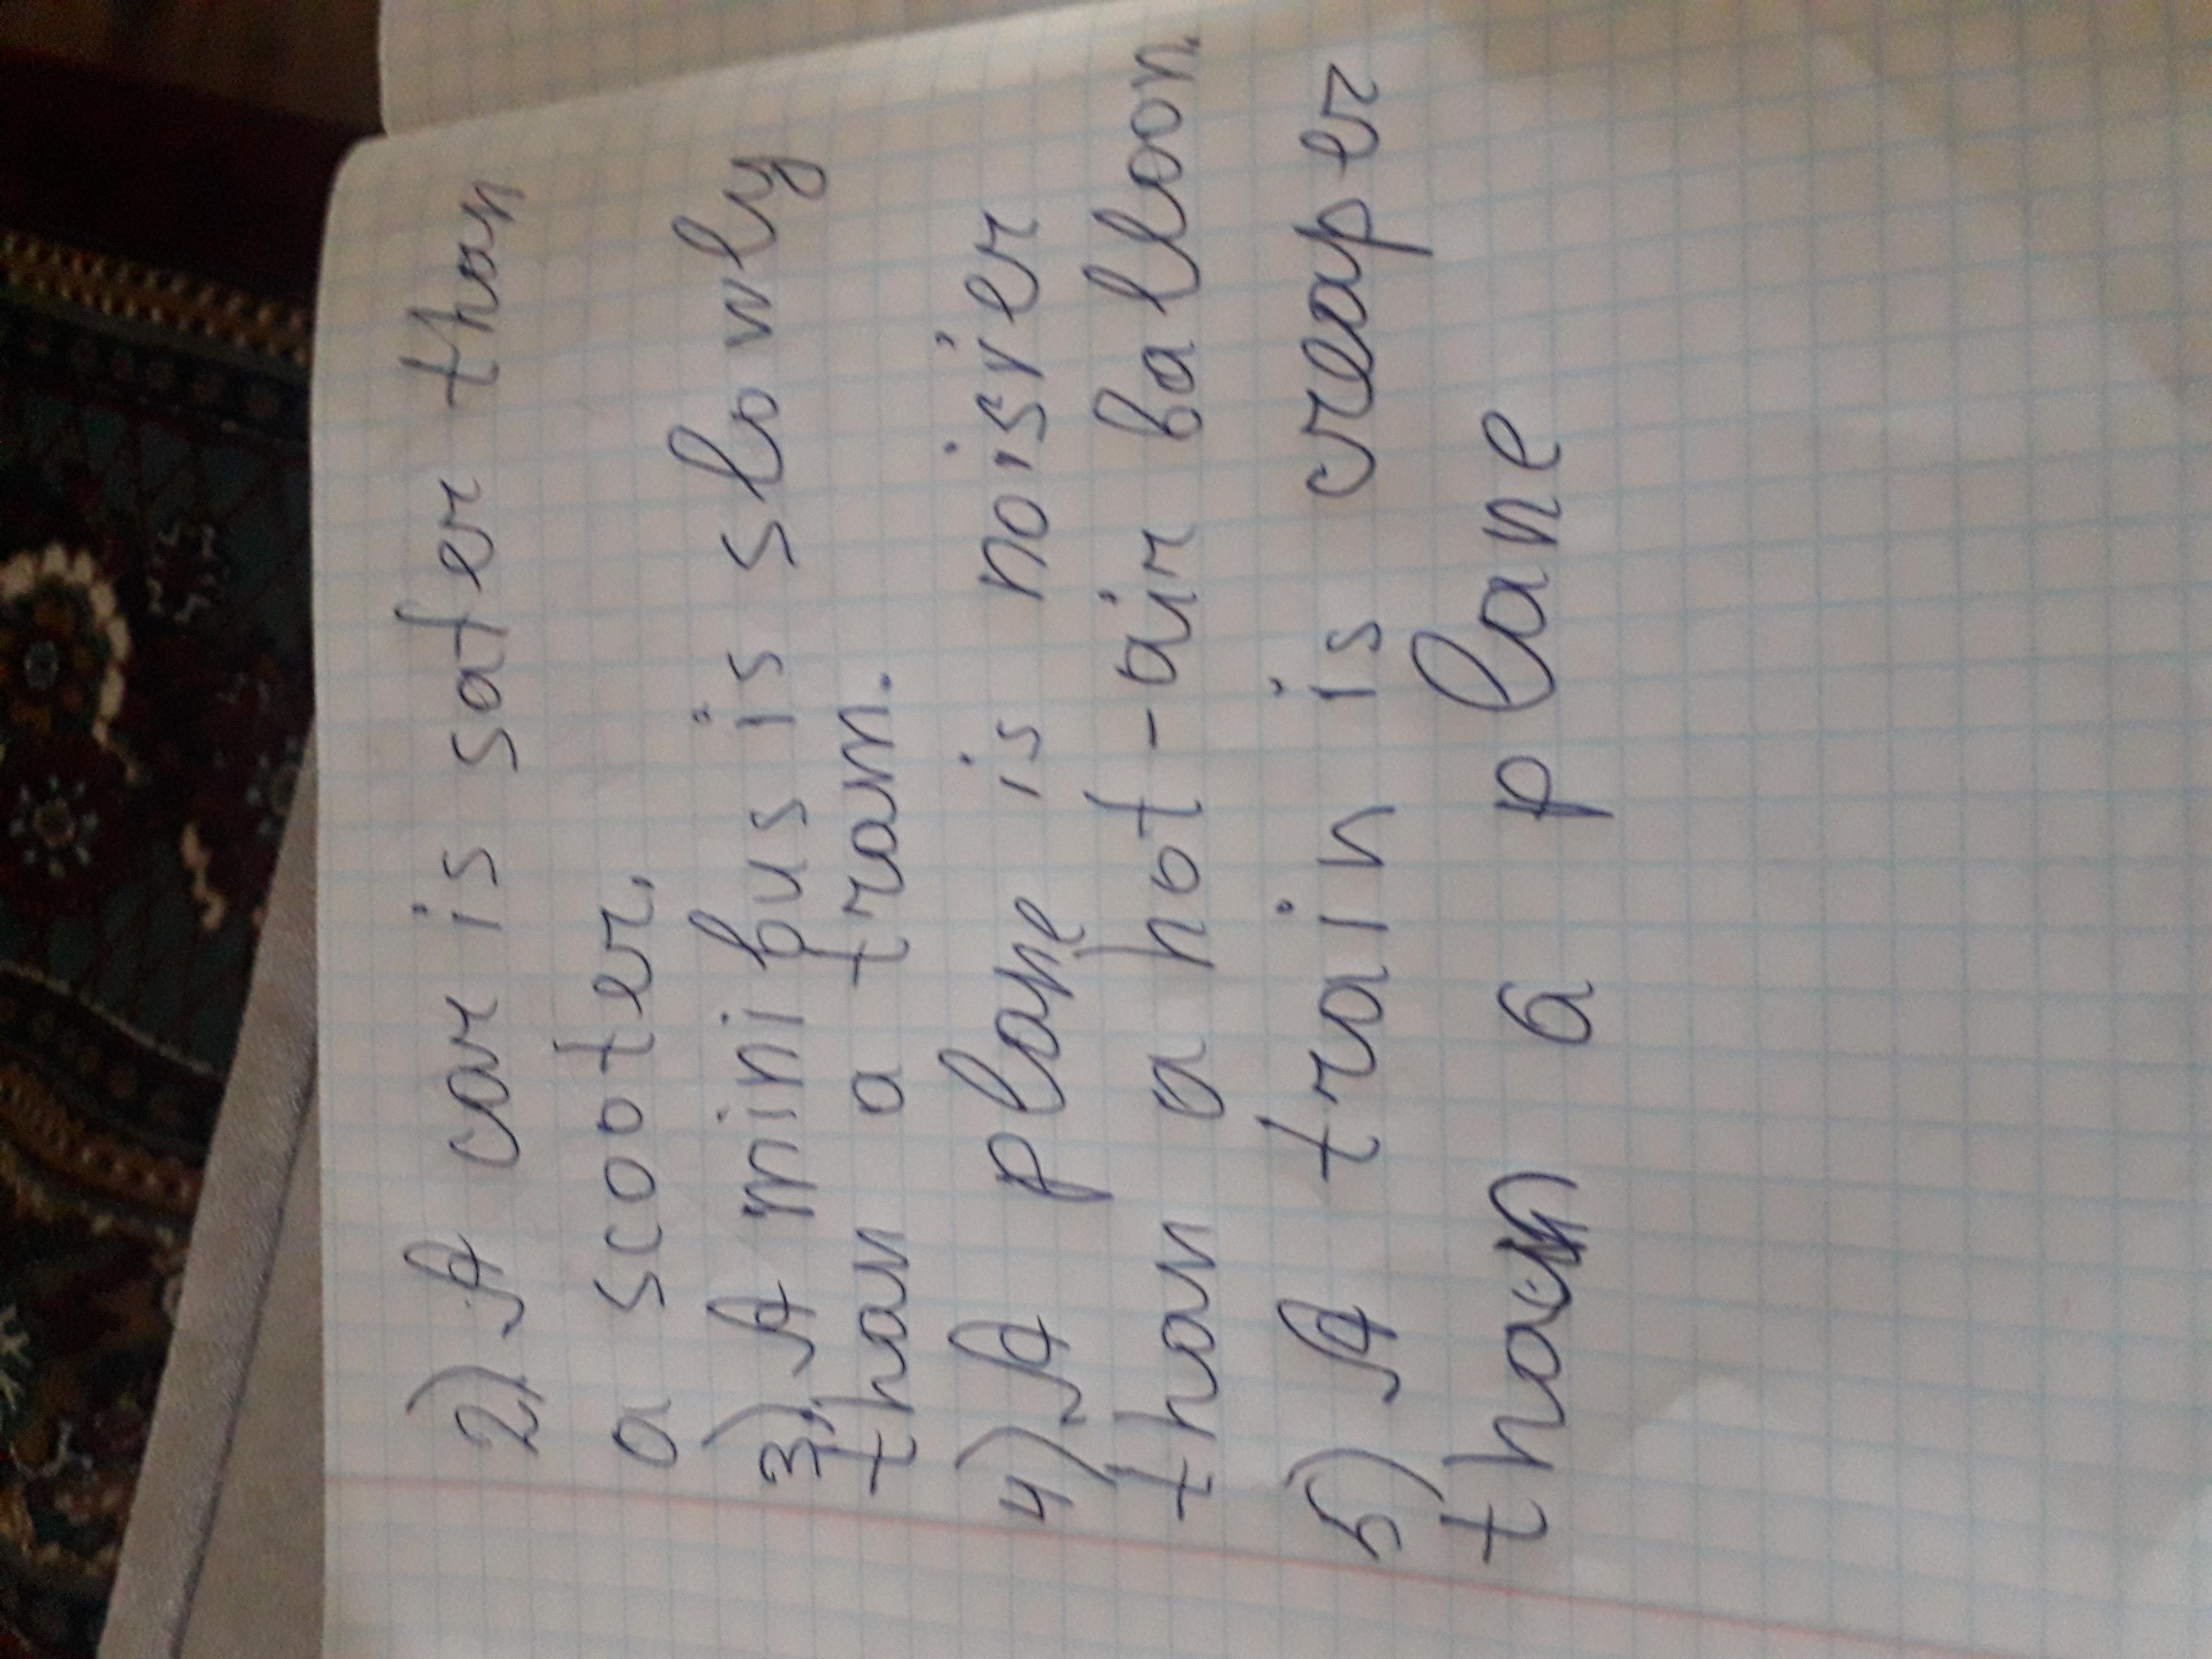 2) A car is safer than
a scooter.
3) A minibus is slowly
than a tram.
4) A plane is noisier
than a hot-air balloon.
5) A train is creaper
than a plane